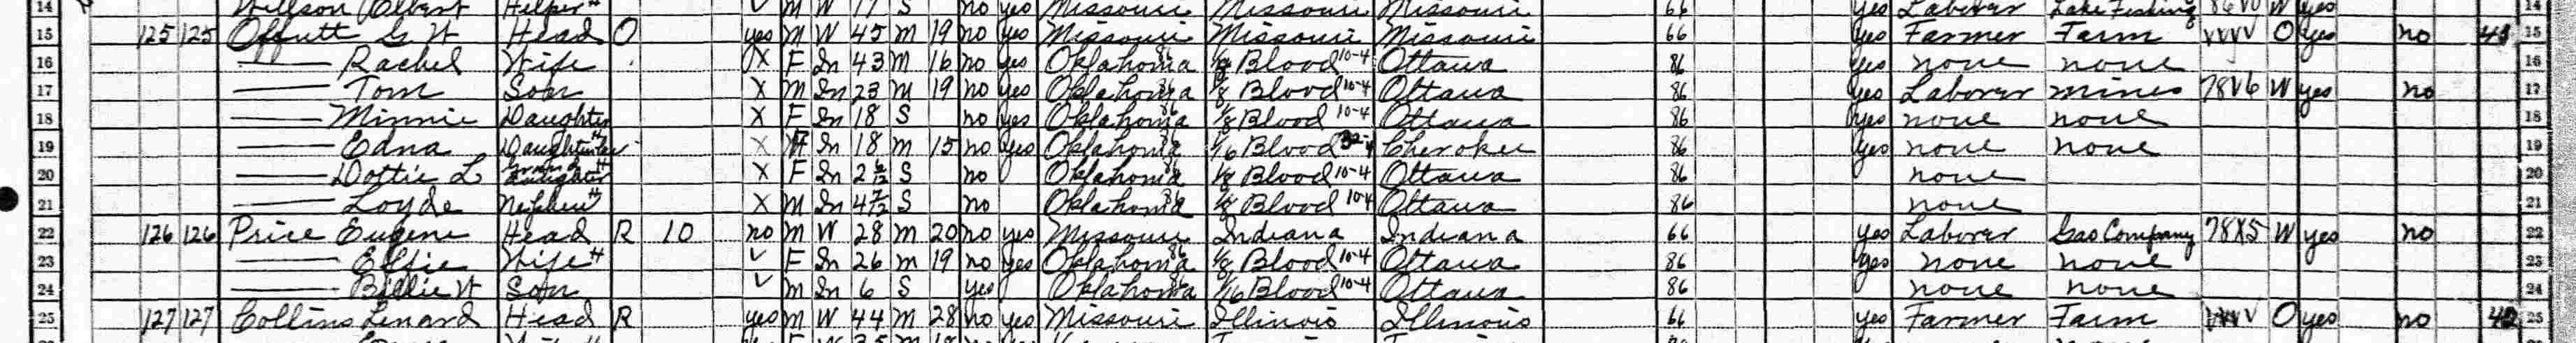 14 Willson Elbert Helper M W 17 S no yes Missouri Missouri Missouri 66 yes Laborer Lake Fishing W yes 14
15 125 125 Offutt G W Head O yes M W 45 M 19 no yes Missouri Missouri Missouri 66 yes Farmer Farm VVVV O yes no 15
16 — Rachel Wife X F In 43 M 16 no yes Oklahoma Blood 10-4 Ottawa 86 yes none none 16
17 — Tom Son X M In 23 M 19 no yes Oklahoma 1/8 Blood 10-4 Ottawa 86 yes Laborer mines 78V6 W yes no 17
18 — Minnie Daughter X F In 18 S no yes Oklahoma 1/8 Blood 10-4 Ottawa 86 yes none none 18
19 — Edna X F In 18 M 15 no yes Oklahoma 1/16 Blood Cherokee 86 yes none none 19
20 — Dottie L X F In 2 S no Oklahoma 1/8 Blood 10-4 Ottawa 86 none 20
21 — Loyde Nephew X M In 4 7/12 S no Oklahoma 1/8 Blood 10-4 Ottawa 86 none 21
22 126 126 Price Eugene Head R 10 no M W 28 M 20 no yes Missouri Indiana Indiana 66 yes Laborer Gas Company 78X5 W yes no 22
23 — Effie Wife H V F In 26 M 19 no yes Oklahoma 1/8 Blood 10-4 Ottawa 86 yes none none 23
24 — Billie W Son V M In 6 S yes Oklahoma 1/16 Blood 10-4 Ottawa 86 none none 24
25 127 127 Collins Lenard Head R yes M W 44 M 28 no yes Missouri Illinois Illinois 66 yes Farmer Farm VVVV O yes no 42 25